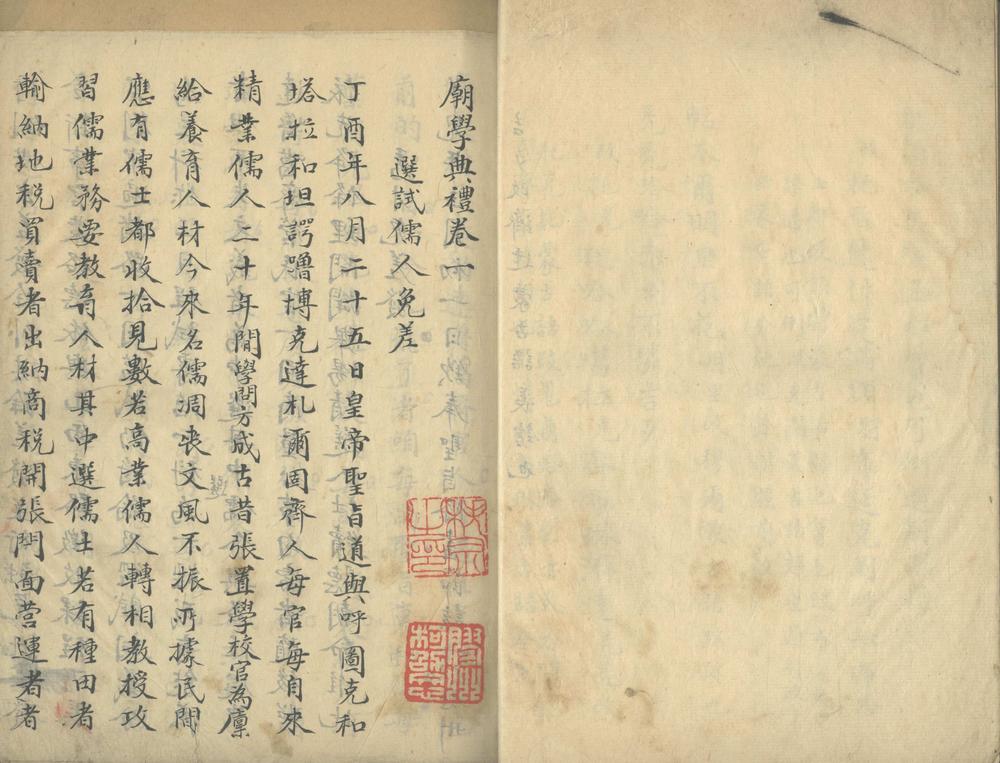 廟學典禮卷一
選試儒人免差
丁酉年八月二十五日皇帝聖旨道與呼圖克和
塔拉和坦諤嚕博克達札爾固齊人每官每自來
精業儒人二十年間學問方成古昔張置學校官為廩
給養育人材今來名儒凋喪文風不振所據民間
應有儒士都收拾見數若高業儒人轉相教授攻
習儒業務要教育人材其中選儒士若有種田者
輸納地税買賣者出納商税開張門面營運者者
膠州
柯劭忞